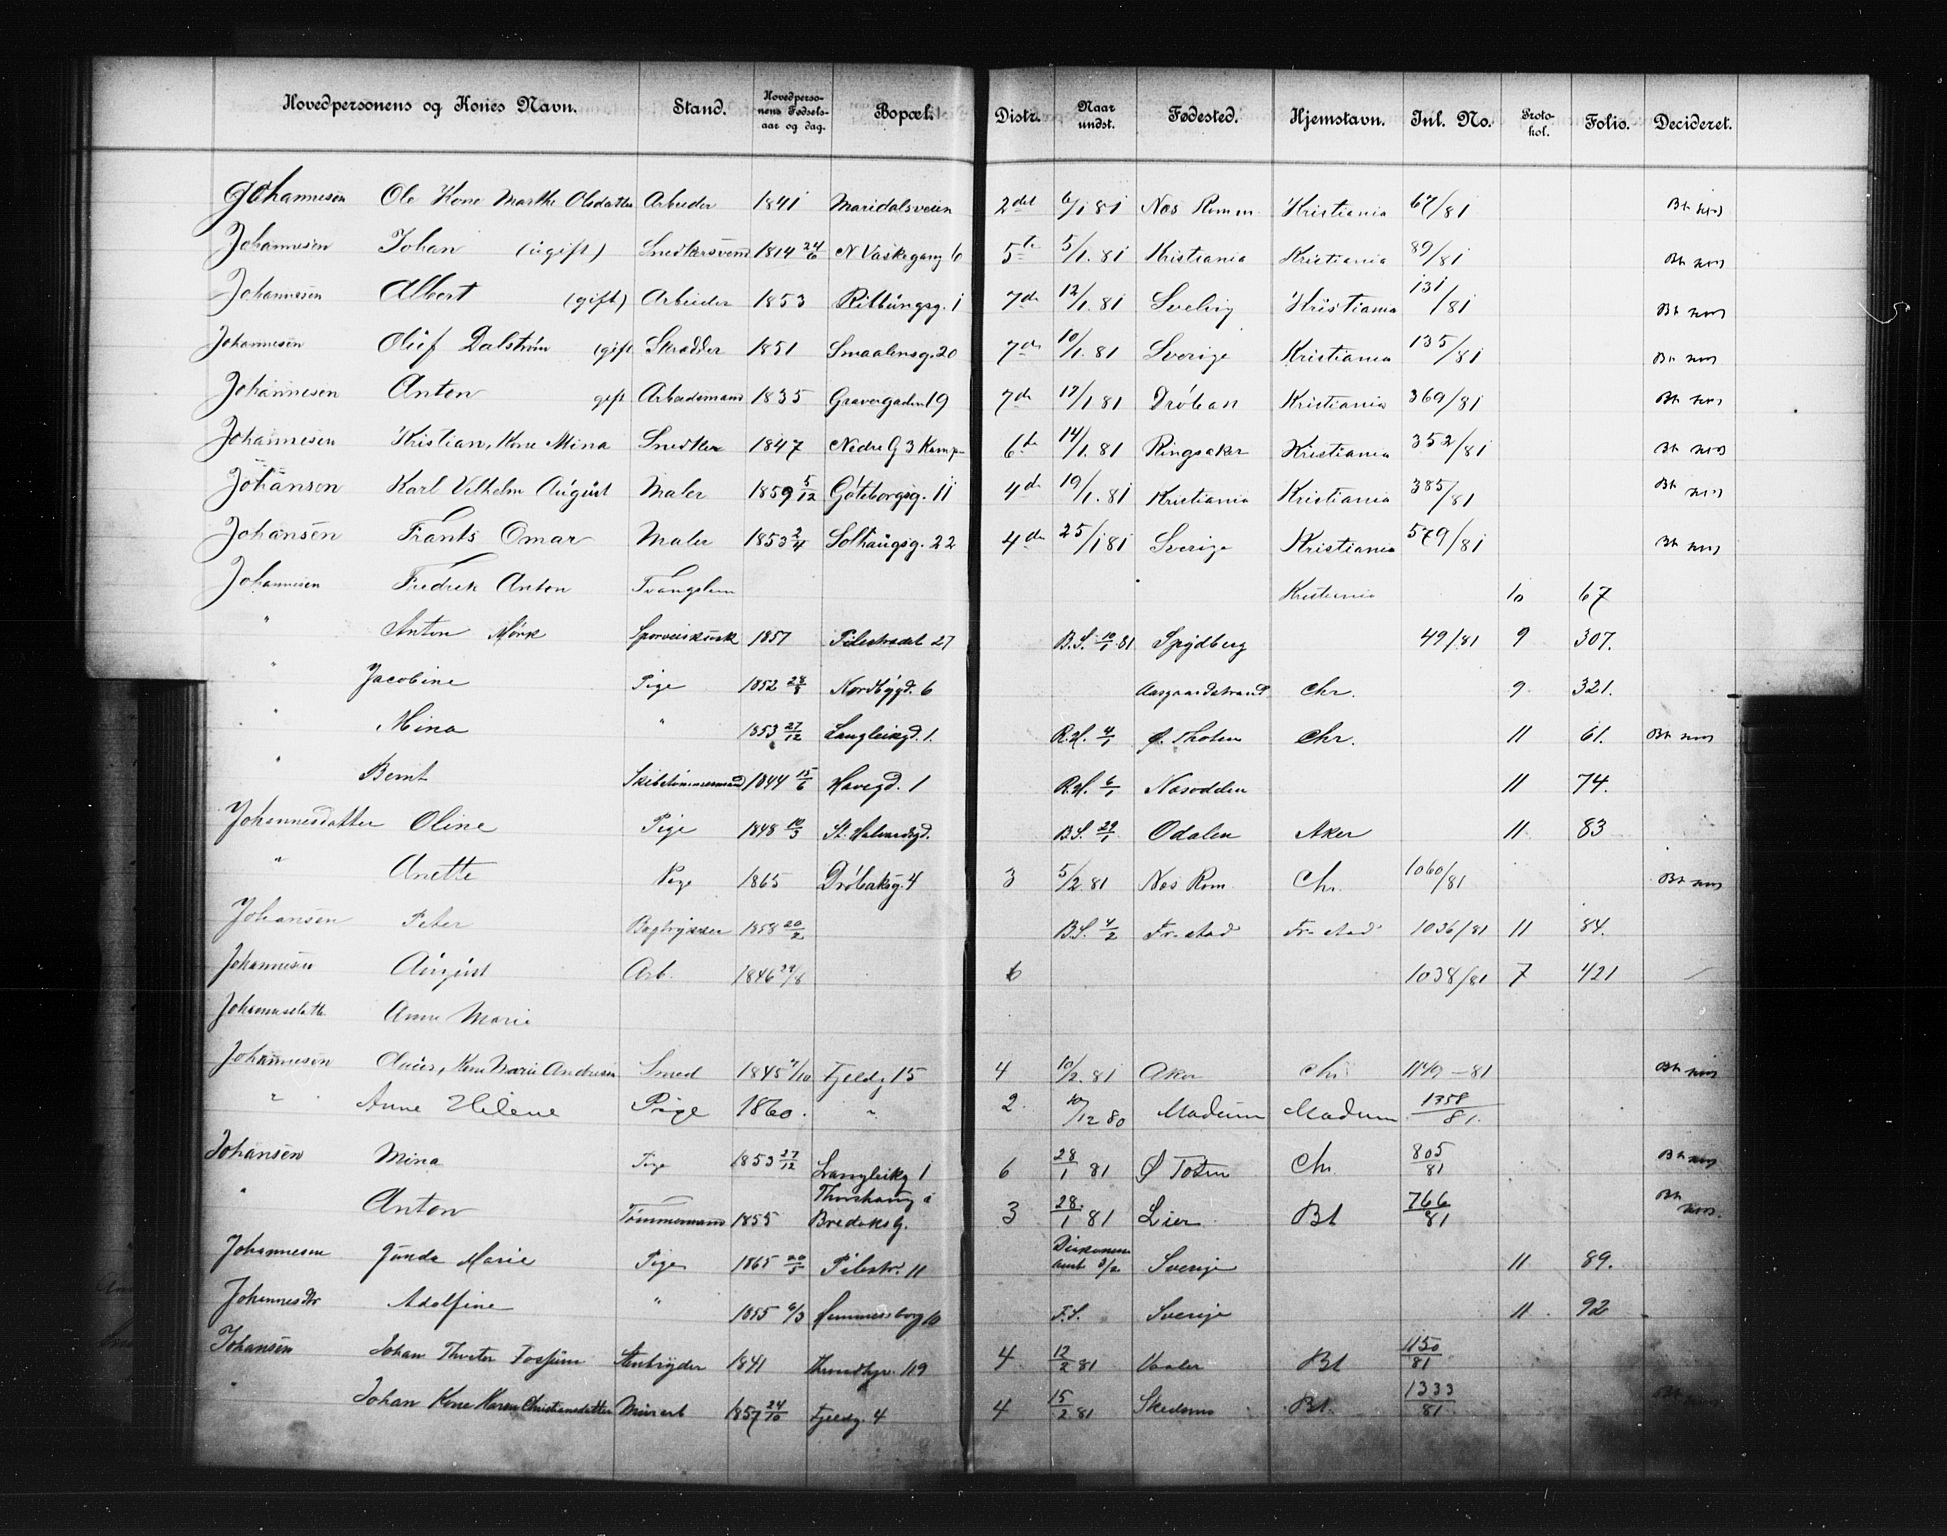 Hovedpersonens og Kones Navn. Stand. Hovedpersonens Fødselsaar og dag. Bopæl. Distr. Naar undst. Fødested. Hjemstavn. Inl. No. Protokol. Folio. Decideret.
Johannesen Ole Kone Marthe Olsdatter Arbeider 1841 Maridalsveien 2det 6/1 81 Nes Rom Kristiania 67/81
Johannesen Johan (ugift) Snedkersvend 1814 24/6 N Vaskegang 6 5te 5/1 81 Kristiania Kristiania 89/81
Johannesen Albert (gift) Arbeider 1853 Rubbungsg. 1 7de 12/1 81 Svelvig Kristiania 131/81
Johannesen Oluf Dalstrøm (gift Skrædder 1851 Smaalensg. 20 7de 10/1 81 Sverige Kristiania 135/81
Johannesen Anton gift Arbeidsmand 1835 Gravergaden 19 7de 17/1 81 Drøbak Kristiania 369/81
Johannesen Kristian, Kone Mina Snedker 1847 Nedre G 3 Kamp 6te 14/1 81 Ringsaker Kristiania 352/81
Johanson Karl Vilhelm August Maler 1859 5/12 Gøteborgsg. 11 4de 19/1 81 Kristiania Kristiania 385/81
Johansen Frants Omar Maler 1853 2/4 Solhaugsg. 22 4de 25/1 81 Sverige Kristiania 579/81
Johannesen Fredrik Anton Tvangslem Kristiania 10 67
" Anton Mørk Sporveiskusk 1857 Pilestrædet 27 B.S. 10/1 81 Spydberg 49/81 9 307.
" Jacobine Pige 1852 28/8 Nordbygd. 6 Aasgaardstrand Chr. 9 321.
" Mina " 1853 27/12 Langleikgd. 1. R.H. 4/1 Ø. Thoten Chr. 11 61.
" Bernt Skibstømmermand 1844 15/6 Havegd. 1 R.H. 6/1 Næsodden 11 74.
Johannesdatter Oline Pige 1848 10/3 St. Halvardsgd. B.S. 29/1 Odalen Aker 11 83
" Anette Pige 1865 Drøbaksg. 4 3 5/2 81 Nes Rom. Chr. 1060/81
Johansen Peter Bogtrykker 1858 20/2 B.S. 4/2 Fr-stad Fr-stad 1036/81 11 84.
Johannesen August Arb. 1846 29/8 6 1038/81 7 421
Johannesdatt Anne Marie
Johannesen Claus, Kone Marie Andersen Smed 1845 7/10 Fjeldg 15 4 10/2 81 Aker Chr 1149-81
" Anne Helene Pige 1860. " 2. 10/12 80 Modum Modum 1358/81.
Johansen Mina Pige 1853 27/12 Langleikg 1 6 28/1 81 Ø Toten Chr 805/81
" Anton Tømmermand 1855 Thorshaug i Bredoksg. 3 28/1 81 Lier Bt 766/81
Johannesen Gunda Marie Pige 1865 20/5 Pilestr. 11 3/2 Sverige 11 89.
Johannesdtr Adolfine " 1855 6/3 Hammersborg 10 F.S. Sverige 11 92
Johansen Johan Thveter Fossum Stenbryder 1841 119 4 12/2 81 Vaaler Bt 1150/81
" Johan Kone Karen Christiansdatter Murarb 1857 24/10 Fjeldg. 4 4 15/2 81 Skedsmo Bt. 1333/81